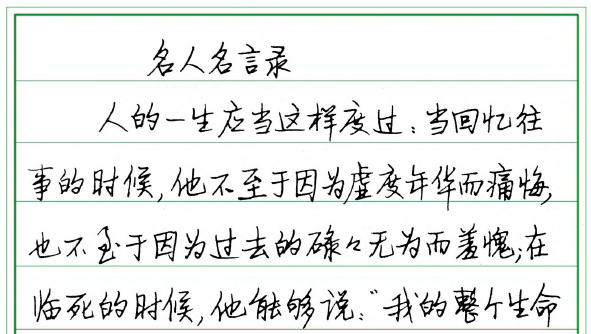 名人名言录
人的一生应当这样度过:当回忆往
事的时候,他不至于因为虚度年华而痛悔,
也不至于因为过去的碌々无为而羞愧;在
临死的时候,他能够说:“我的整个生命